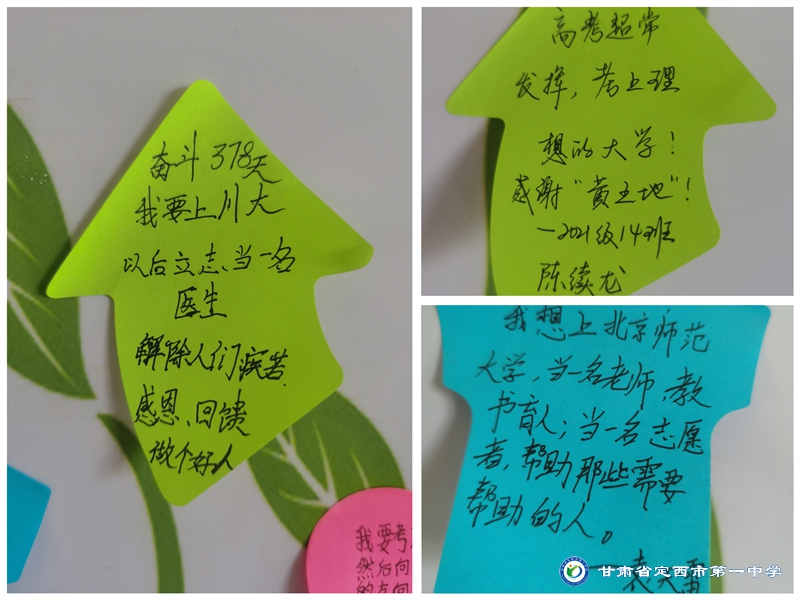 奋斗 378天
我要上川大
以后立志、当一名
医生
解除人们疾苦、
感恩、回馈
做个好人
我要考
然后向
高考超常
发挥，考上理
想的大学！
感谢“黄土地”！
—2021级14班
陈续龙
我想上北京师范
大学，当一名老师，教
书育人；当一名志愿
者，帮助那些需要
帮助的人。
甘肃省定西市第一中学